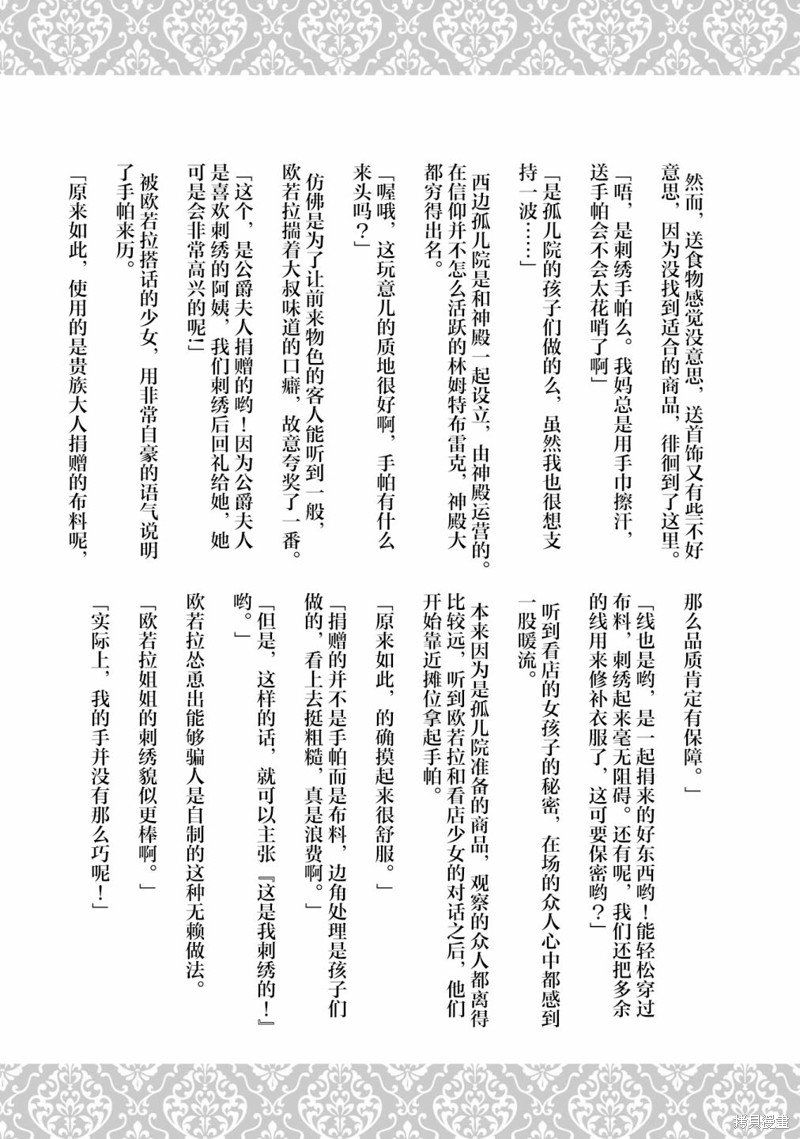 然而，送食物感觉没意思，送首饰又有些不好
意思，因为没找到适合的商品，徘徊到了这里。
「唔，是刺绣手帕么。我妈总是用手巾擦汗，
送手帕会不会太花哨了啊」
「是孤儿院的孩子们做的么，虽然我也很想支
持一波……」
西边孤儿院是和神殿一起设立，由神殿运营的。
在信仰并不怎么活跃的林姆特布雷克，神殿大
都穷得出名。
「喔哦，这玩意儿的质地很好啊，手帕有什么
来头吗？」
仿佛是为了让前来物色的客人能听到一般，
欧若拉揣着大叔味道的口癖，故意夸奖了一番。
「这个，是公爵夫人捐赠的哟！因为公爵夫人
是喜欢刺绣的阿姨，我们刺绣后回礼给她，她
可是会非常高兴的呢！」
被欧若拉搭话的少女，用非常自豪的语气说明
了手帕来历。
「原来如此，使用的是贵族大人捐赠的布料呢，
那么品质肯定有保障。」
「线也是哟，是一起捐来的好东西哟！能轻松穿过
布料，刺绣起来毫无阻碍。还有呢，我们还把多余
的线用来修补衣服了，这可要保密哟？」
听到看店的女孩子的秘密，在场的众人心中都感到
一股暖流。
本来因为是孤儿院准备的商品，观察的众人都离得
比较远，听到欧若拉和看店少女的对话之后，他们
开始靠近摊位拿起手帕。
「原来如此，的确摸起来很舒服。」
「捐赠的并不是手帕而是布料，边角处理是孩子们
做的，看上去挺粗糙，真是浪费啊。」
「但是，这样的话，就可以主张『这是我刺绣的！』
哟。」
欧若拉怂恿出能够骗人是自制的这种无赖做法。
「欧若拉姐姐的刺绣貌似更棒啊。」
「实际上，我的手并没有那么巧呢！」
拷貝漫畫